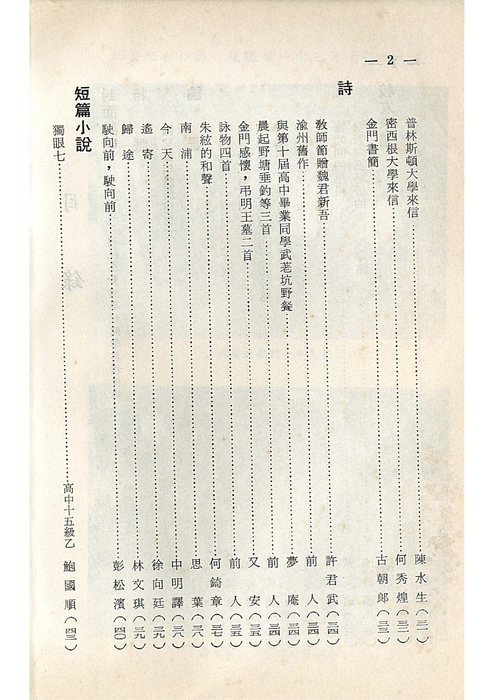 — 2 —
普林斯頓大學來信……陳水生(三一)
密西根大學來信……何秀煌(三二)
金門書簡……古朝郎(三三)
詩
教師節贈魏君新吾……許君武(三四)
渝州舊作……前人(三四)
與第十屆高中畢業同學武荖坑野餐……夢庵(三四)
晨起野塘垂釣等三首……前人(三四)
金門感懷，弔明王墓二首……又安(三五)
詠物四首……前人(三五)
朱絃的和聲……何錡章(三七)
南浦……思葉(三八)
今天……中明譯(三八)
遙寄……徐向廷(三九)
歸途……林文琪(三九)
駛向前，駛向前……彭松濱(四〇)
短篇小說
獨眼七……高中十五級乙 鮑國順(四三)